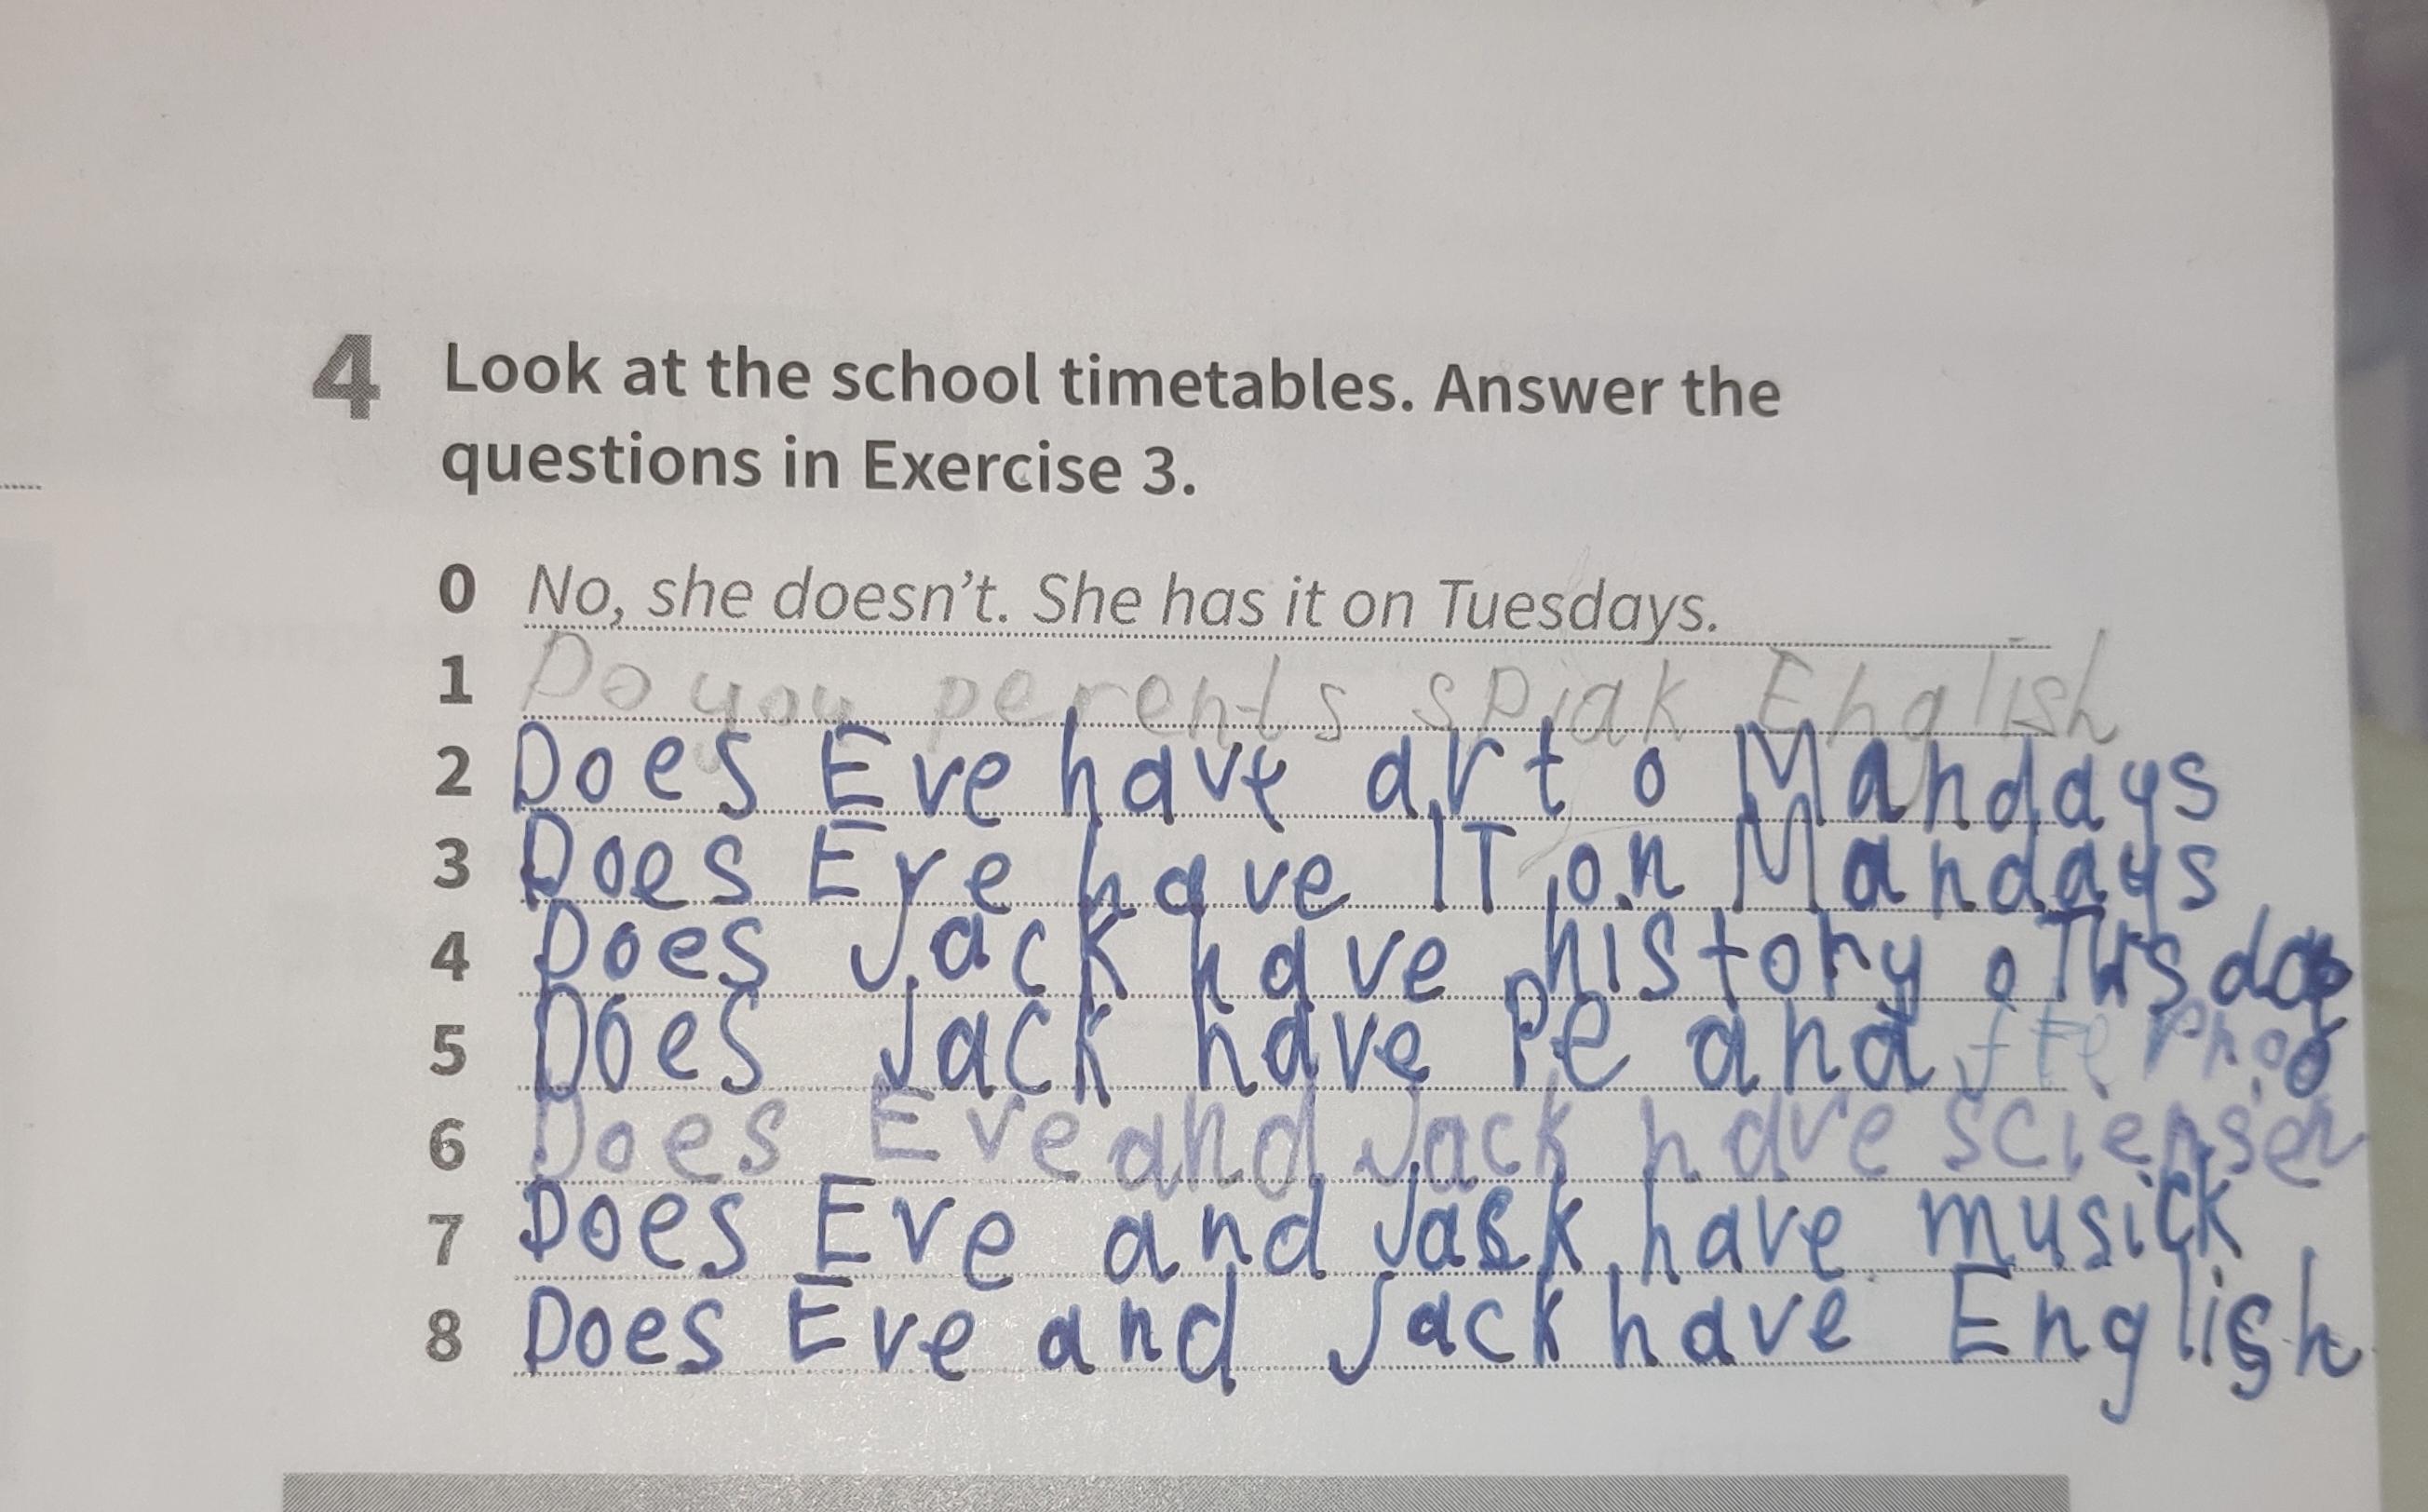 4 Look at the school timetables. Answer the
questions in Exercise 3.
0 No, she doesn't. She has it on Tuesdays.
1 Do you perents spiak English
2 Does Eve have art o Mandays
3 Does Eve have IT on Mandays
4 Does Jack have history o
5 Does Jack have Pe and
6 Does Eve and Jack have
7 Does Eve and Jack have musick
8 Does Eve and Jack have English